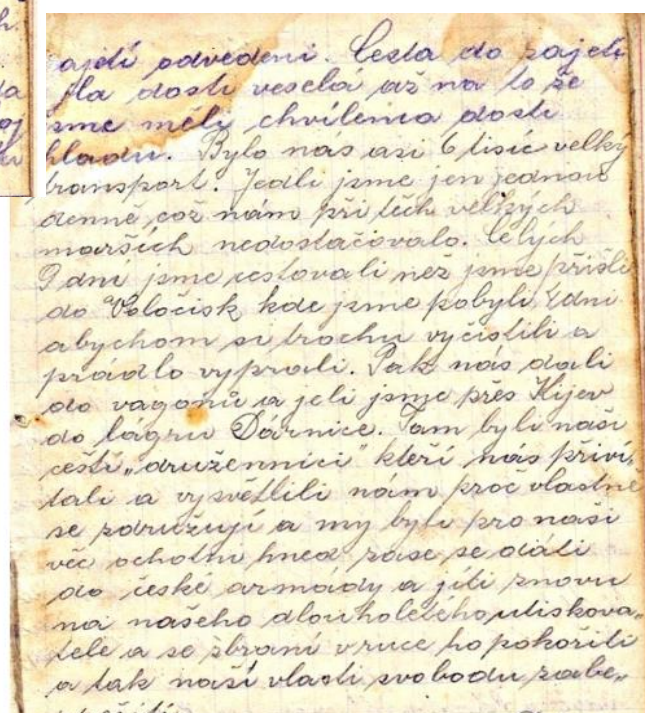 zajetí odvedeni. Cesta do zajetí
byla dosti veselá až na to že
jsme měli chvílema dosti
hladu. Bylo nás asi 6 tisíc velký
transport. Jedli jsme jen jednou
denně, což nám při těch velkých
marších nedostačovalo. Celých
9 dní jsme cestovali než jsme přišli
do Voločisk kde jsme pobyli 2 dni
abychom si trochu vyčistili a
prádlo vyprali. Pak nás dali
do vagonů a jeli jsme přes Kijev
do lágru Dárnice. Tam byli naši
čeští „druženníci" kteří nás přiví„
tali a vysvětlili nám proč vlastně
se sdružují a my byli pro naši
věc ochotni hned zase se dáti
do české armády a jíti znovu
na našeho dlouholetého utiskova„
tele a se zbraní v ruce ho pokořiti
a tak naší vlasti svobodu zabe„